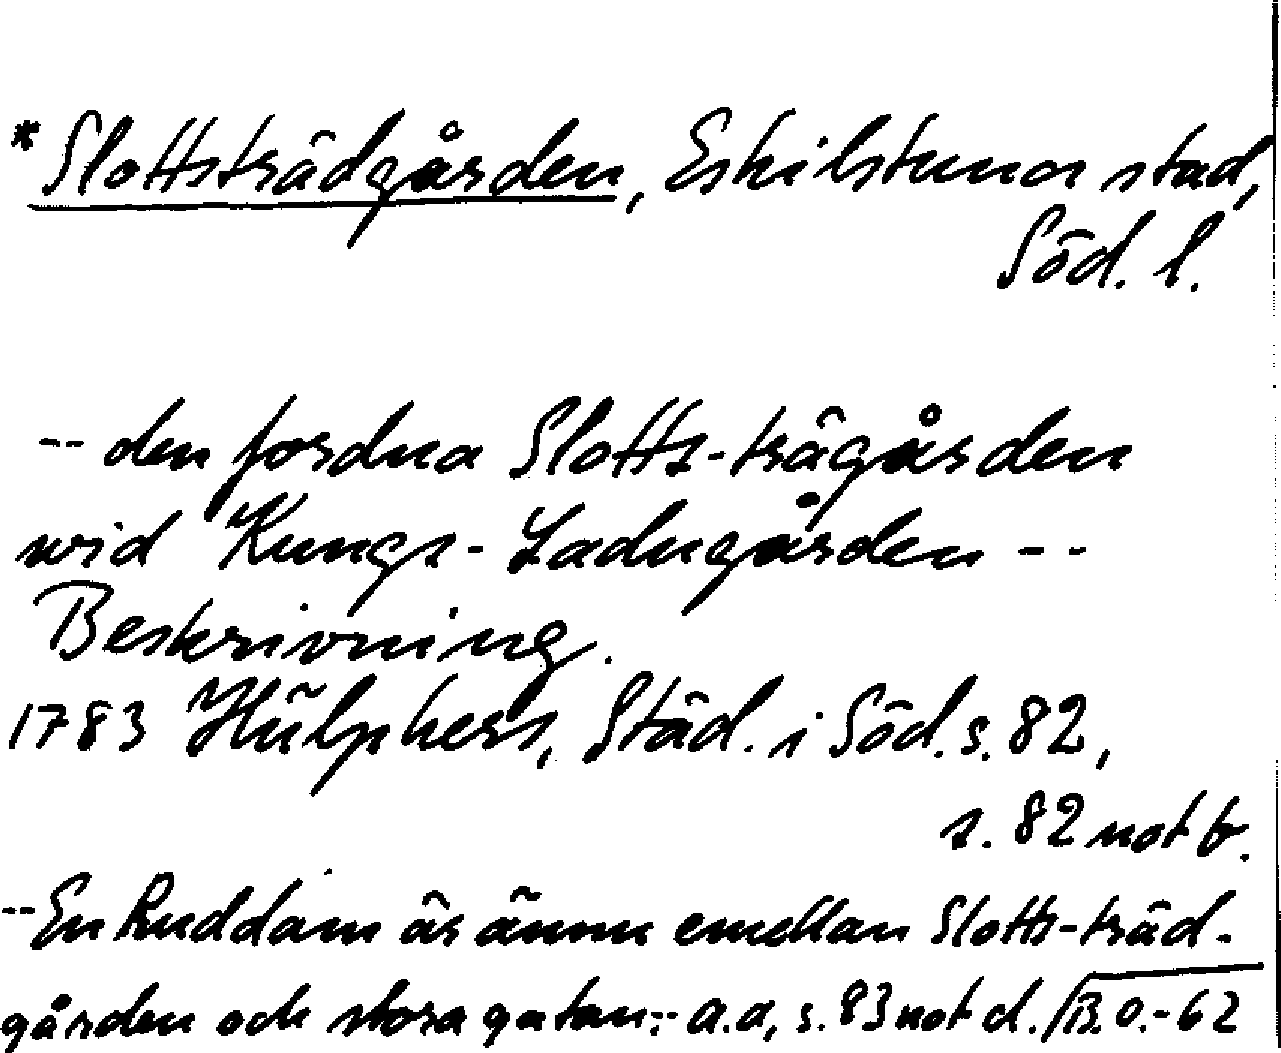 * Slottsträdgården, Eskilstuna stad,
Söd. l.
-- den fordna Slotts-trägården
wid Kungs-Ladugården --
Beskrivning.
1783 Hülphers, Städ. i Söd. s. 82,
s. 82 not b.
-- En Ruddam är ännu emellan Slotts-träd-
gården och stora gatan;- a.a, s. 83 not d. B.O.-62